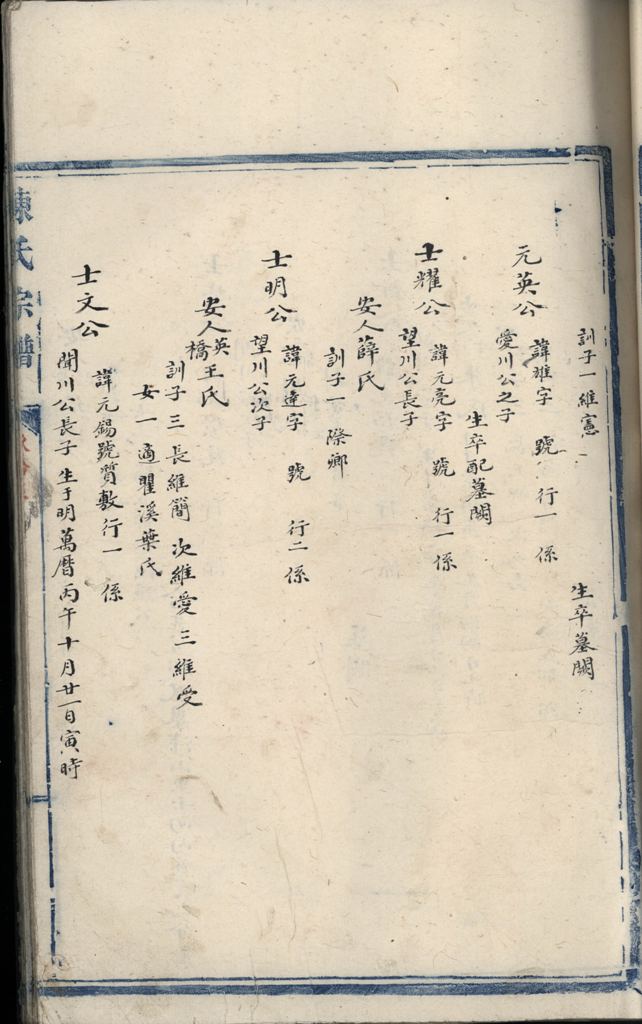 訓子一維憲 生卒墓闕
元英公
諱
字 號 行一 係
愛川公之子
生卒配墓闕
士耀公
諱元亮字 號 行一係
望川公長子
安人薛氏
訓子一際鄉
士明公
諱元達字 號 行二係
望川公次子
安人英橋王氏
訓子三 長維簡 次維愛 三維受
女一適瞿溪葉氏
士文公
諱元錫號質敷行一 係
聞川公長子 生于明萬曆丙午十月廿一日寅時
陳氏宗譜